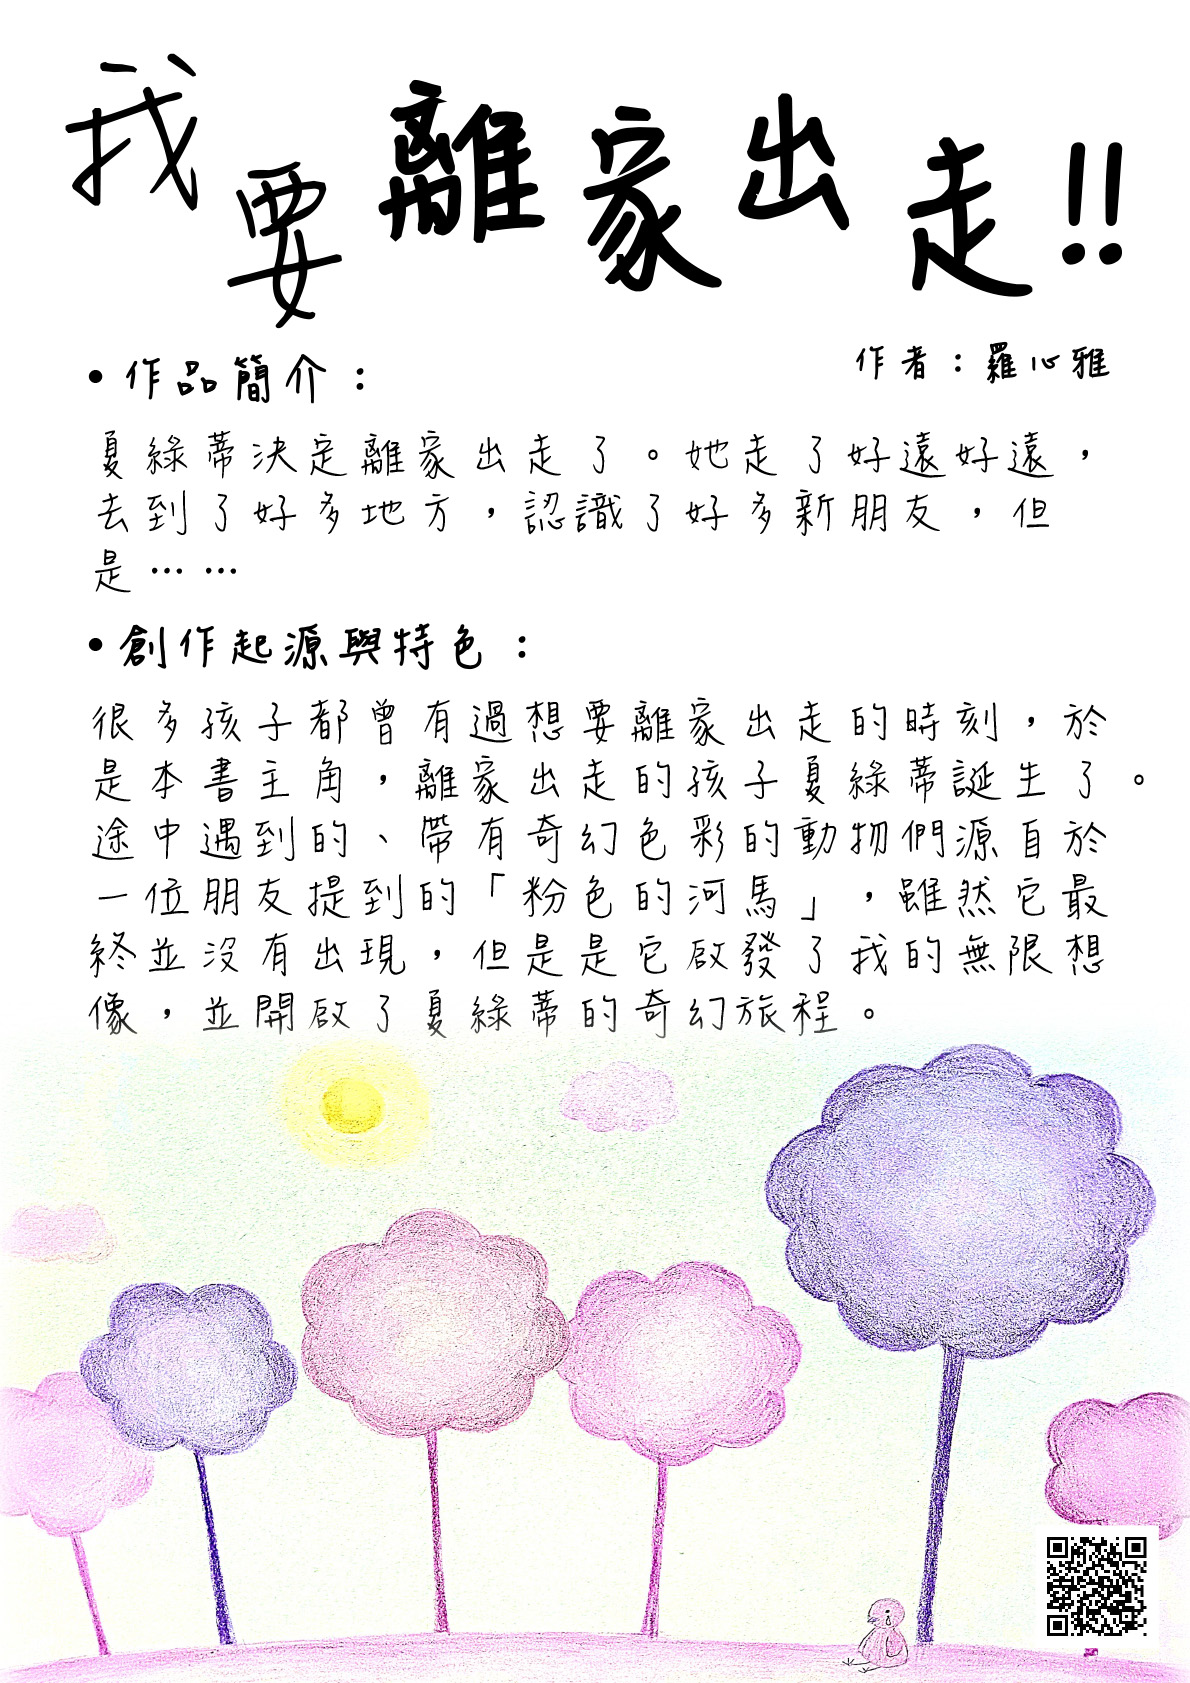 我要離家出走!!
作者：羅心雅
•作品簡介：
夏綠蒂決定離家出走了。她走了好遠好遠，
去到了好多地方，認識了好多新朋友，但
是……
•創作起源與特色：
很多孩子都曾有過想要離家出走的時刻，於
是本書主角，離家出走的孩子夏綠蒂誕生了。
途中遇到的、帶有奇幻色彩的動物們源自於
一位朋友提到的「粉色的河馬」，雖然它最
終並沒有出現，但是是它啟發了我的無限想
像，並開啟了夏綠蒂的奇幻旅程。